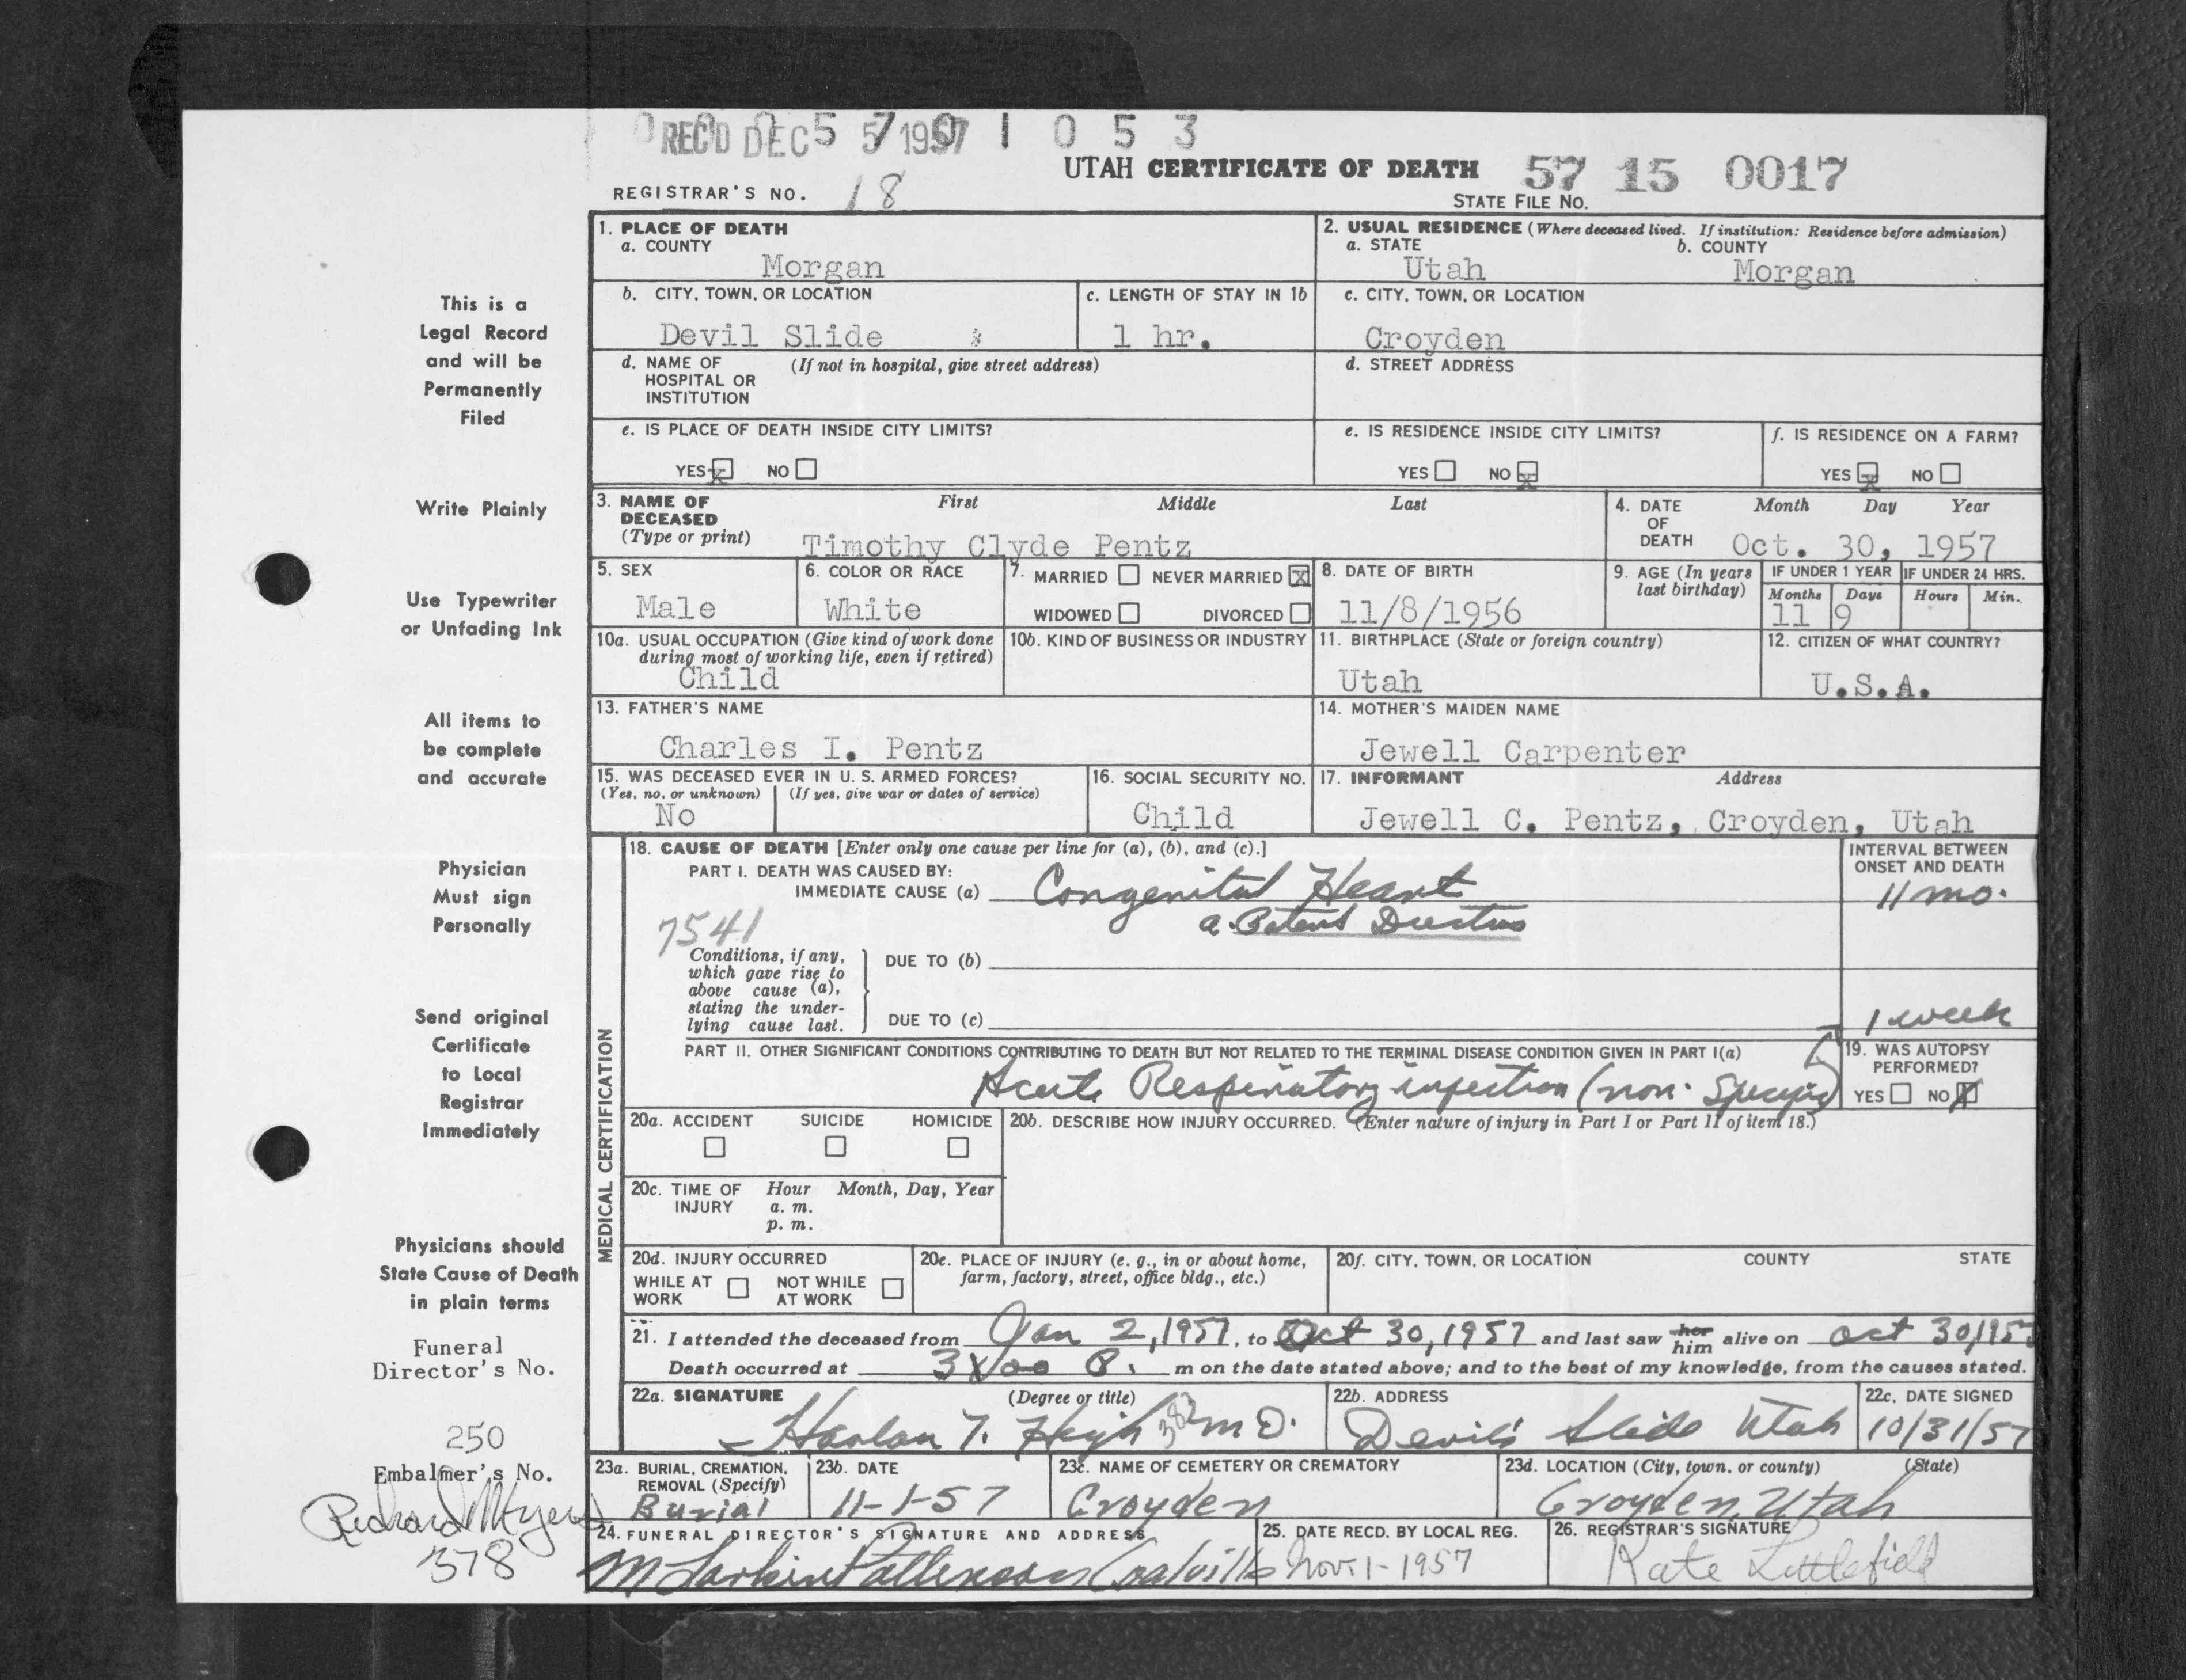 REC'D DEC 5 1957 1 0 5 3
UTAH CERTIFICATE OF DEATH 57 15 0017
REGISTRAR'S NO. 18
STATE FILE NO.
1. PLACE OF DEATH
a. COUNTY
Morgan
2. USUAL RESIDENCE (Where deceased lived. If institution: Residence before admission)
a. STATE b. COUNTY
Utah Morgan
b. CITY, TOWN, OR LOCATION
Devil Slide
c. LENGTH OF STAY IN 1b
1 hr.
c. CITY, TOWN, OR LOCATION
Croyden
d. NAME OF (If not in hospital, give street address)
HOSPITAL OR
INSTITUTION
d. STREET ADDRESS
e. IS PLACE OF DEATH INSIDE CITY LIMITS?
YES x NO
e. IS RESIDENCE INSIDE CITY LIMITS?
YES NO x
f. IS RESIDENCE ON A FARM?
YES x NO
3. NAME OF First Middle Last
DECEASED
(Type or print) Timothy Clyde Pentz
4. DATE Month Day Year
OF
DEATH Oct. 30, 1957
5. SEX
Male
6. COLOR OR RACE
White
7. MARRIED NEVER MARRIED x
WIDOWED DIVORCED
8. DATE OF BIRTH
11/8/1956
9. AGE (In years
last birthday)
IF UNDER 1 YEAR
Months Days
11 9
IF UNDER 24 HRS.
Hours Min.
10a. USUAL OCCUPATION (Give kind of work done
during most of working life, even if retired)
Child
10b. KIND OF BUSINESS OR INDUSTRY
11. BIRTHPLACE (State or foreign country)
Utah
12. CITIZEN OF WHAT COUNTRY?
U.S.A.
13. FATHER'S NAME
Charles I. Pentz
14. MOTHER'S MAIDEN NAME
Jewell Carpenter
15. WAS DECEASED EVER IN U. S. ARMED FORCES?
(Yes, no, or unknown) (If yes, give war or dates of service)
No
16. SOCIAL SECURITY NO.
Child
17. INFORMANT Address
Jewell C. Pentz, Croyden, Utah
MEDICAL CERTIFICATION
18. CAUSE OF DEATH [Enter only one cause per line for (a), (b), and (c).]
PART I. DEATH WAS CAUSED BY:
IMMEDIATE CAUSE (a) Congenital Heart
a. Patent Ductus
7541
INTERVAL BETWEEN
ONSET AND DEATH
11 mo.
Conditions, if any,
which gave rise to
above cause (a),
stating the under-
lying cause last.
DUE TO (b)
DUE TO (c)
1 week
PART II. OTHER SIGNIFICANT CONDITIONS CONTRIBUTING TO DEATH BUT NOT RELATED TO THE TERMINAL DISEASE CONDITION GIVEN IN PART I(a)
Acute Respiratory infection (non-specific)
19. WAS AUTOPSY
PERFORMED?
YES NO X
20a. ACCIDENT SUICIDE HOMICIDE
20b. DESCRIBE HOW INJURY OCCURRED. (Enter nature of injury in Part I or Part II of item 18.)
20c. TIME OF Hour Month, Day, Year
INJURY a. m.
p. m.
20d. INJURY OCCURRED
WHILE AT WORK NOT WHILE AT WORK
20e. PLACE OF INJURY (e. g., in or about home,
farm, factory, street, office bldg., etc.)
20f. CITY, TOWN, OR LOCATION COUNTY STATE
21. I attended the deceased from Jan 2, 1957, to Oct 30, 1957 and last saw her him alive on Oct 30, 1957
Death occurred at 3:00 P. m on the date stated above; and to the best of my knowledge, from the causes stated.
22a. SIGNATURE (Degree or title)
Harlan T. High 382 M D.
22b. ADDRESS
Devil's Slide Utah
22c. DATE SIGNED
10/31/57
23a. BURIAL, CREMATION,
REMOVAL (Specify)
Burial
23b. DATE
11-1-57
23c. NAME OF CEMETERY OR CREMATORY
Croyden
23d. LOCATION (City, town, or county) (State)
Croyden, Utah
24. FUNERAL DIRECTOR'S SIGNATURE AND ADDRESS
M Larkin Patterson Coalville
25. DATE RECD. BY LOCAL REG.
Nov. 1-1957
26. REGISTRAR'S SIGNATURE
Kate Littlefield
This is a
Legal Record
and will be
Permanently
Filed
Write Plainly
Use Typewriter
or Unfading Ink
All items to
be complete
and accurate
Physician
Must sign
Personally
Send original
Certificate
to Local
Registrar
Immediately
Physicians should
State Cause of Death
in plain terms
Funeral
Director's No.
250
Embalmer's No.
Richard Myers
378